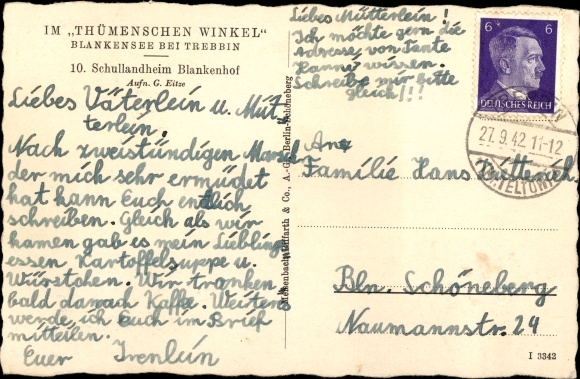 IM „THÜMENSCHEN WINKEL“
BLANKENSEE BEI TREBBIN
10. Schullandheim Blankenhof
Aufn. G. Eitze
Liebes Väterlein u. Müt-
terlein.
Nach zweistündigen Marsch
der mich sehr ermüdet
hat kann Euch endlich
schreiben. Gleich als wir
kamen gab es mein Lieblings
essen Kartoffelsuppe u.
Würstchen. Wir tranken
bald danach Kaffe. Weiteres
werde ich Euch im Brief
mitteilen.
Euer Irenlein
Meisenbach Riffarth & Co., A.-G., Berlin-Schöneberg
Liebes Mütterlein!
Ich möchte gern die
Adresse von Tante
Hanni wissen.
Schreibe mir bitte
gleich!!!
6 6
DEUTSCHES REICH
27.9.42 11-12
TELTOW
An
Familie Hans
Bln. Schöneberg
Naumannstr. 24
I 3342